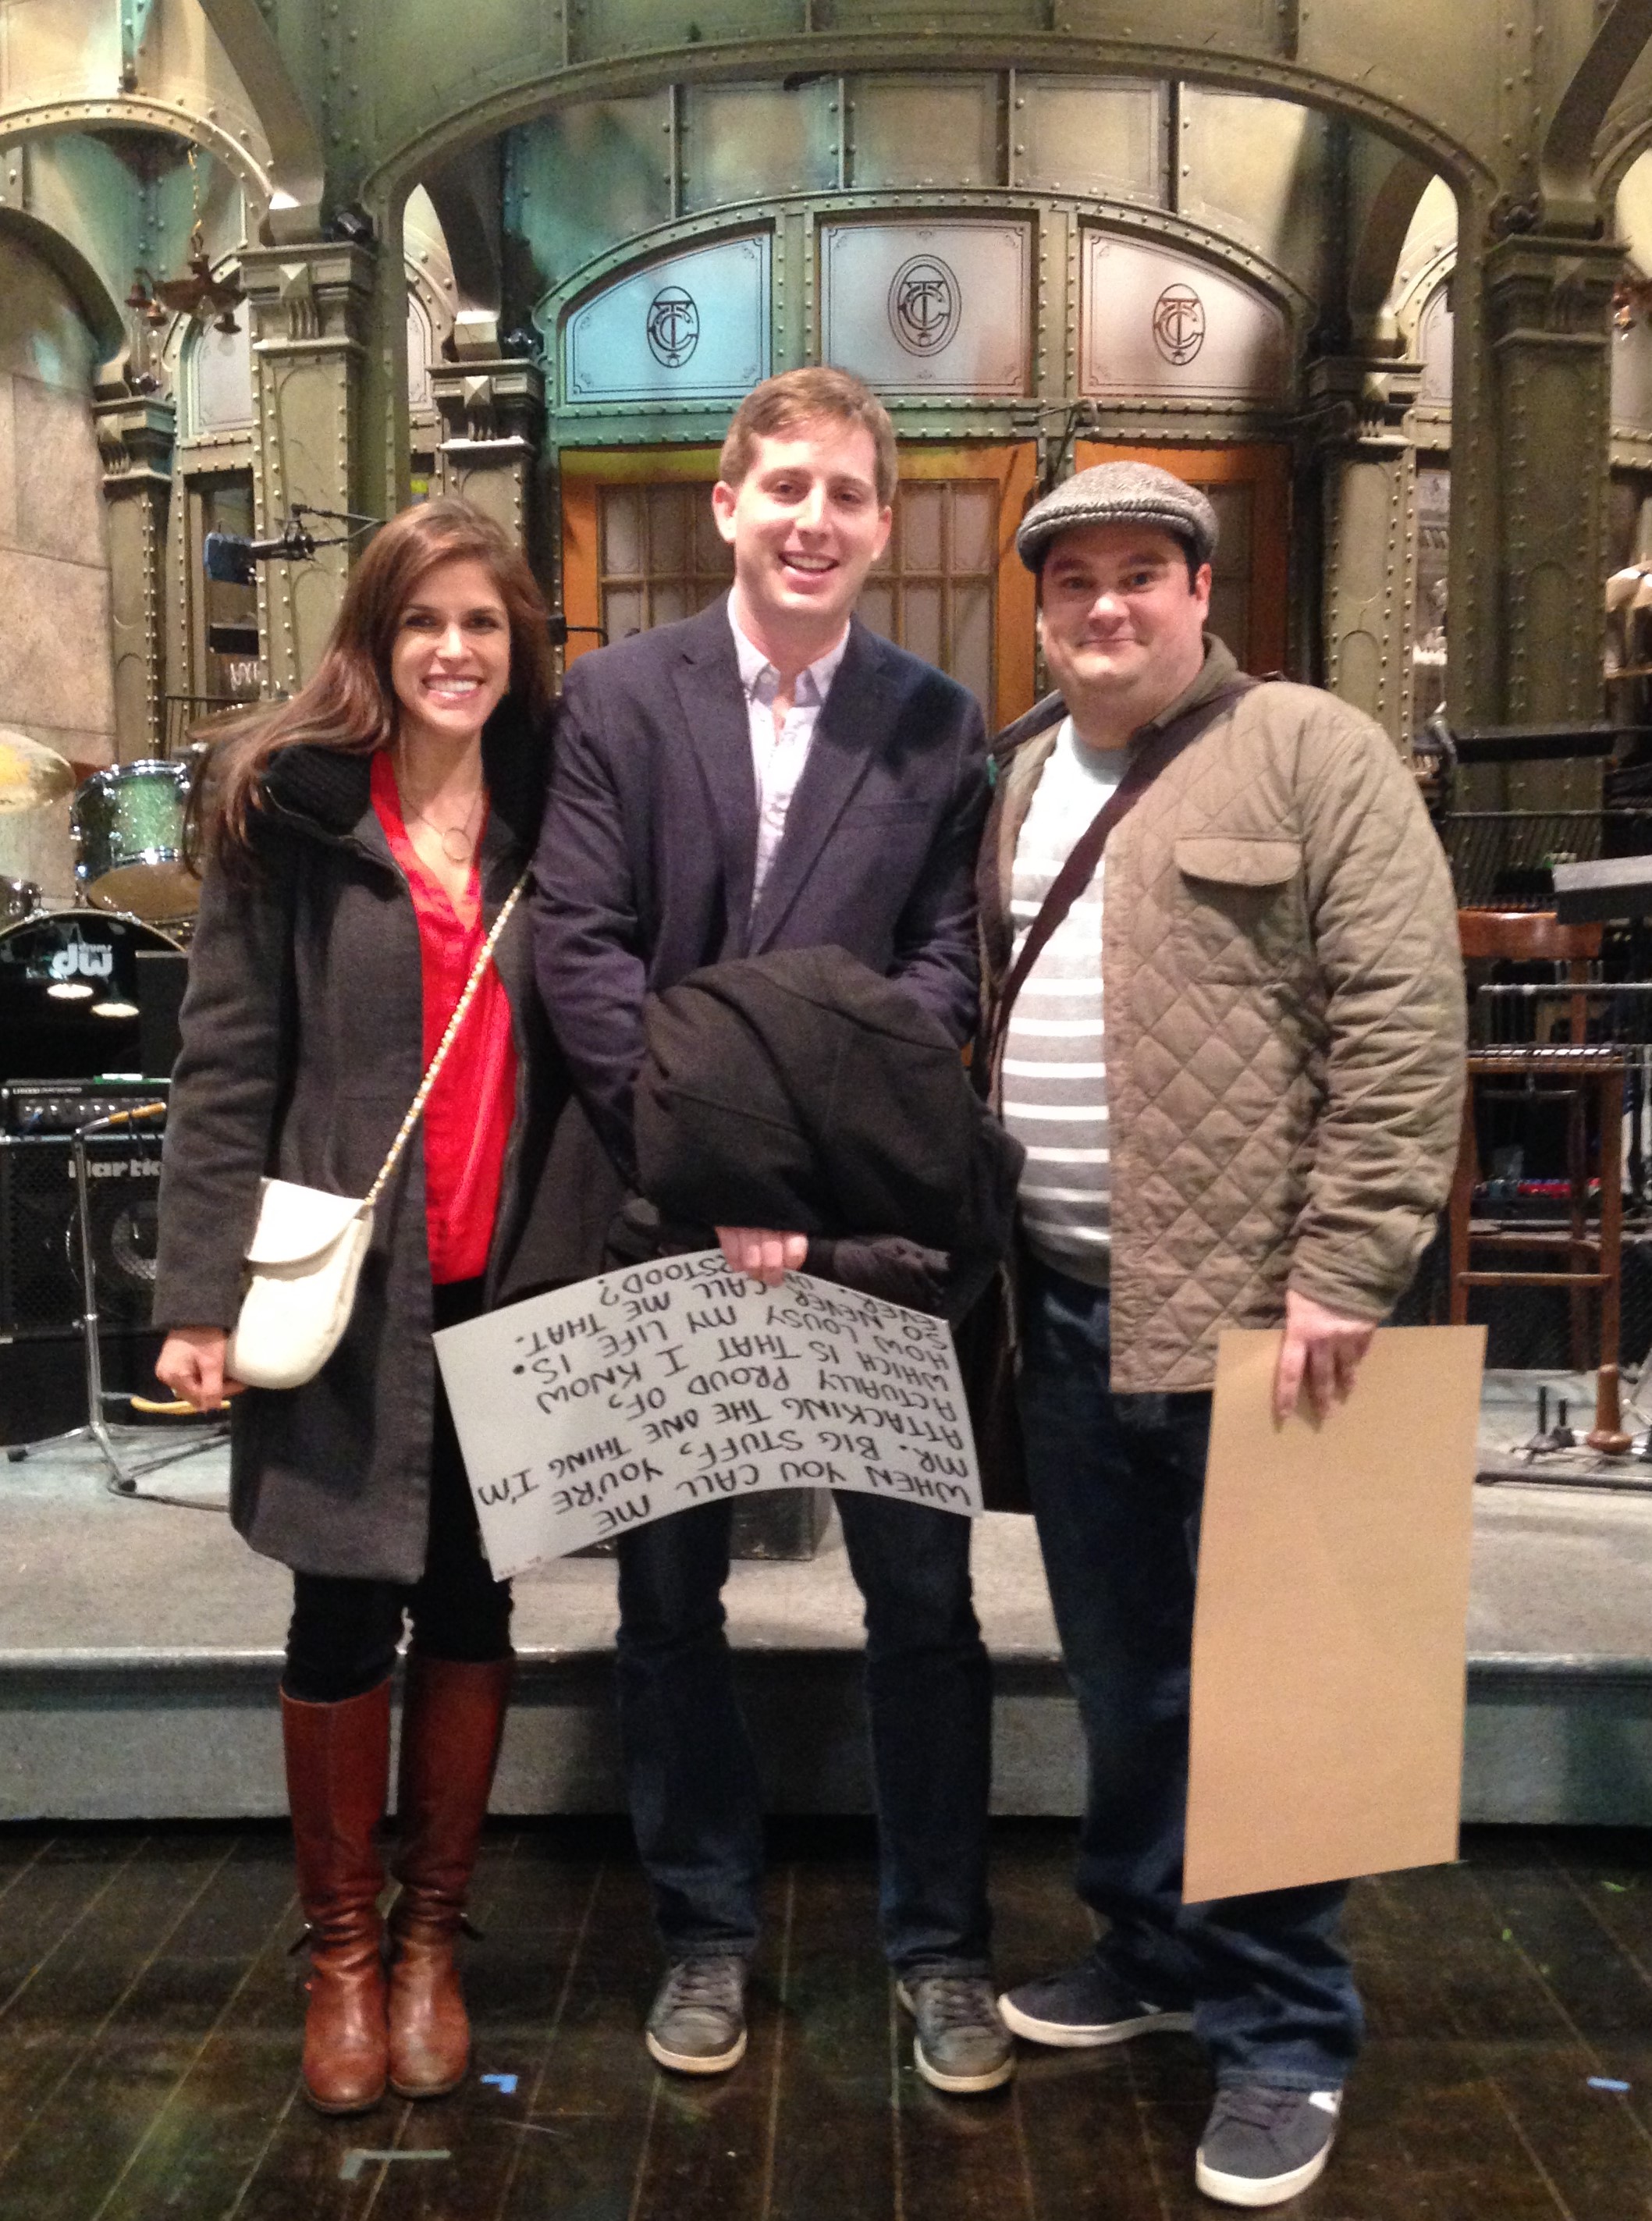 GCT
GCT
GCT
drums
dw
WHEN YOU CALL ME
MR. BIG STUFF, YOU'RE
ATTACKING THE ONE THING I'M
ACTUALLY PROUD OF,
WHICH IS THAT I KNOW
HOW LOUSY MY LIFE IS.
SO NEVER CALL ME THAT.
EVER.